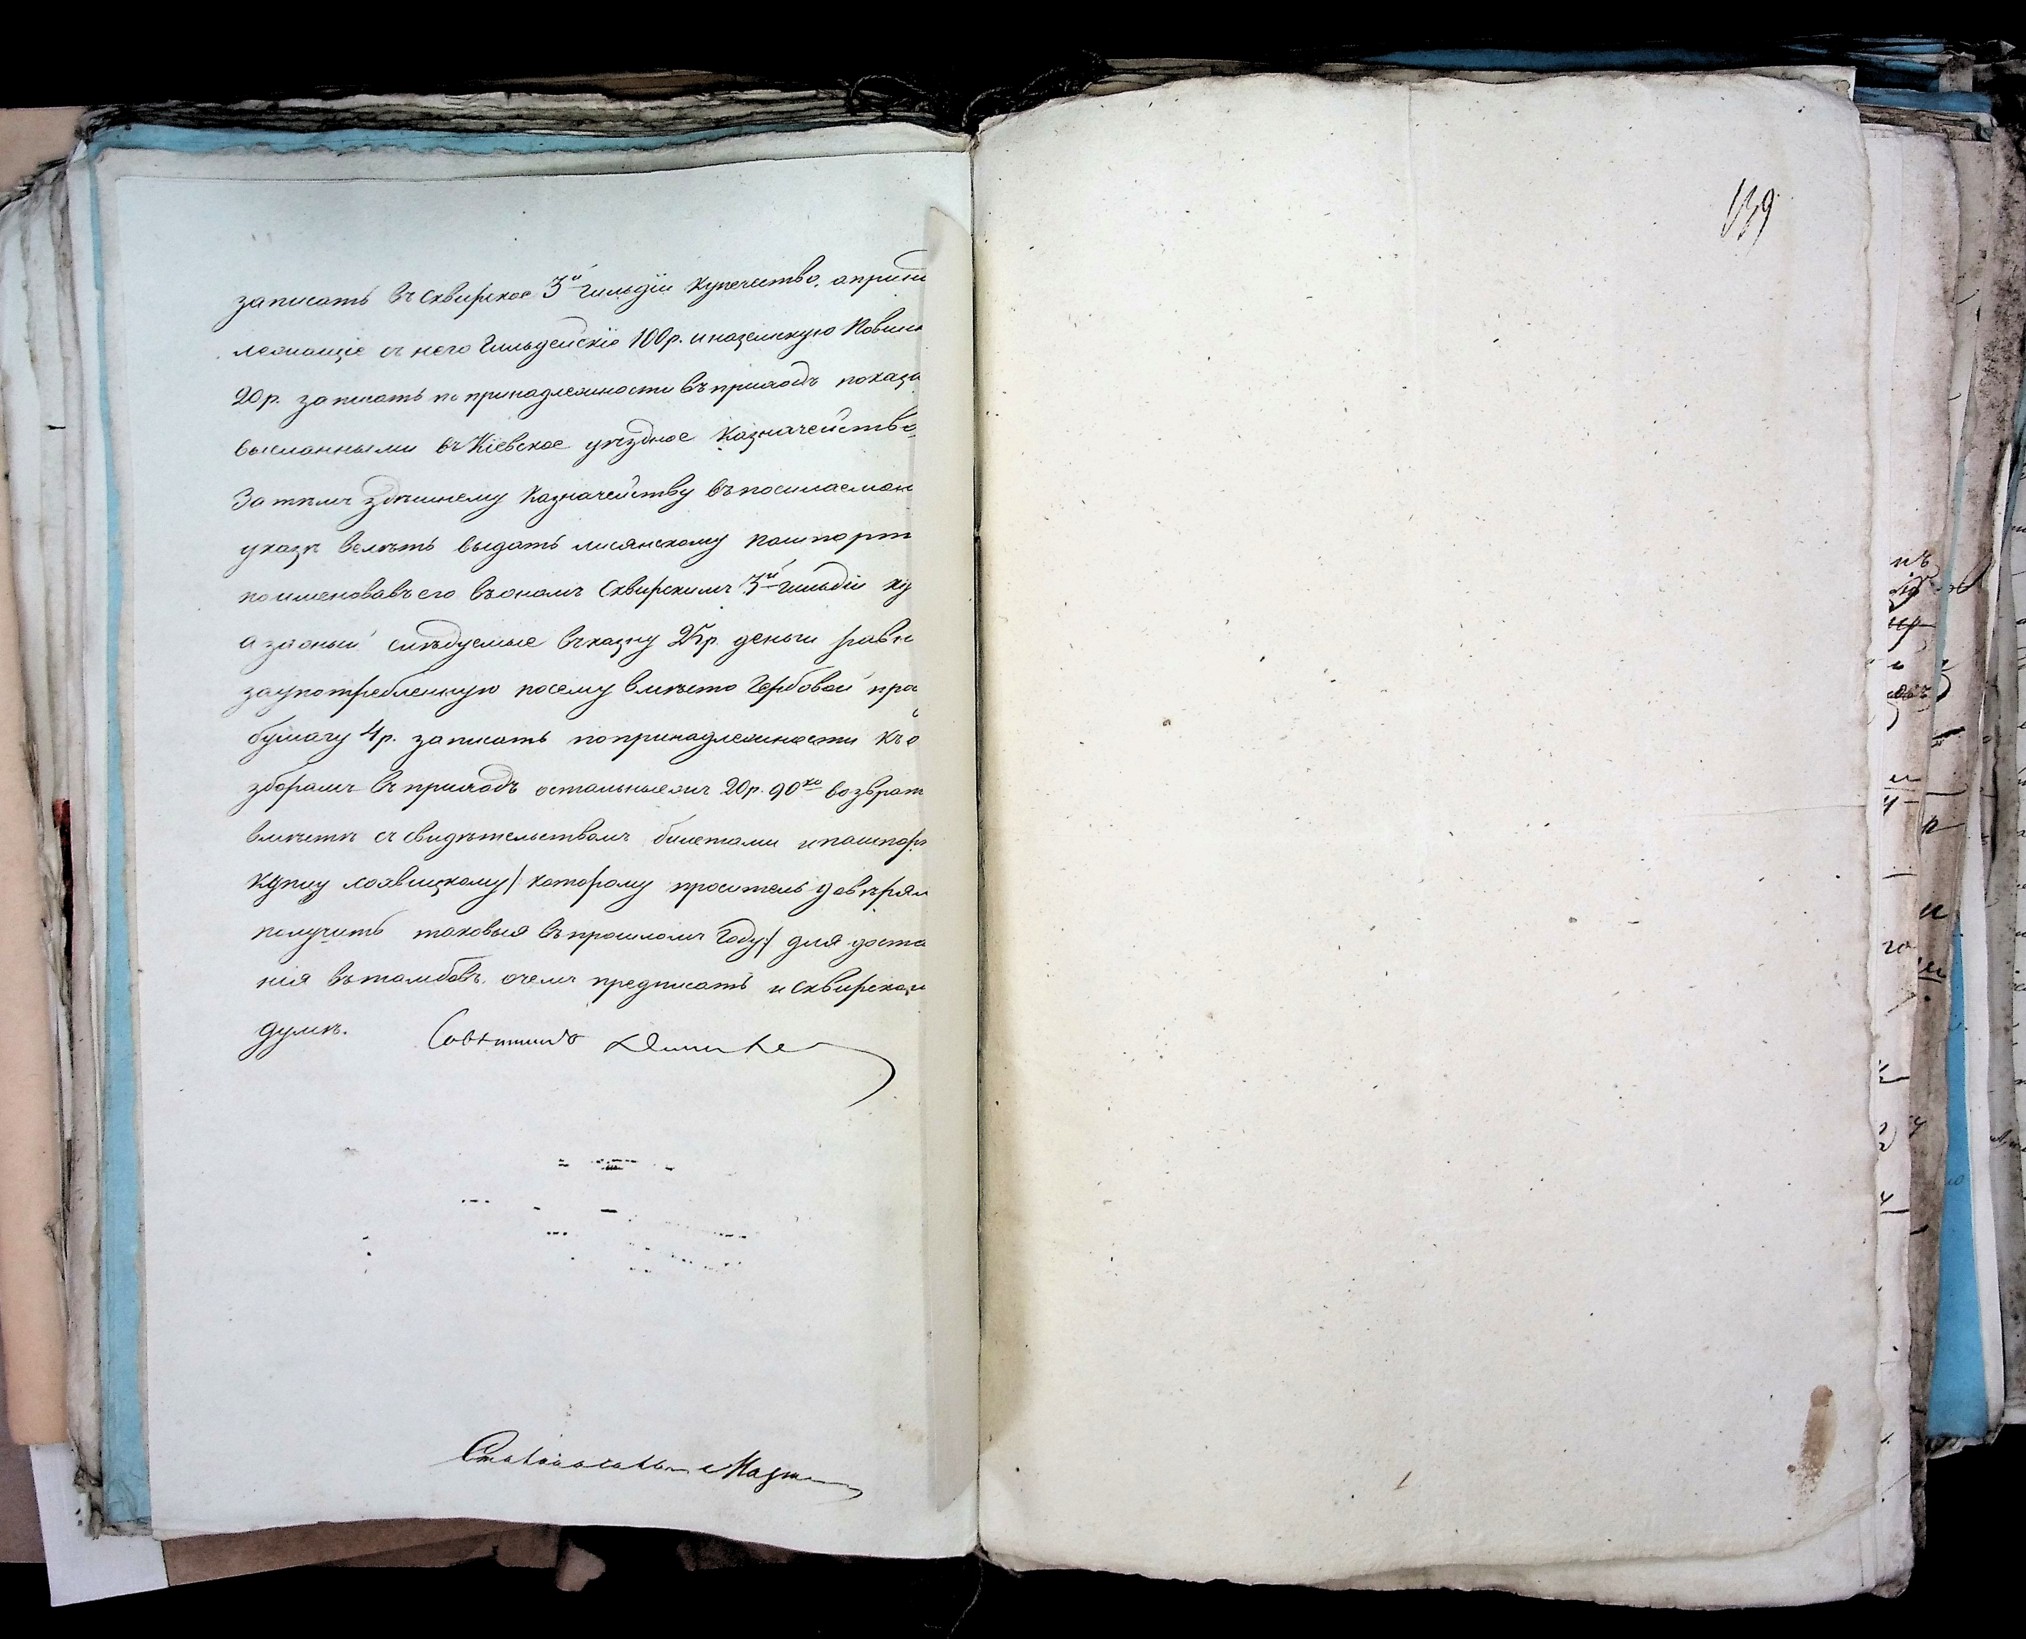 записать въ сквирское 3й гильдіи купечество, а прина
лежащіе съ него Гильдейскіе 100р. и на земскую Повин
20р. записать по принадлежности въ приходъ показа
высланными въ Кіевское уѣздное Казначейство
За тѣмъ здѣшнему Казначейству въ посылаемом
указѣ велѣть выдать лисянскому пашпорт
поименовавъ его въ ономъ Сквирскимъ 3й гильдіи ку
а за оный слѣдуемые въ казну 25р. деньги равн
за употребленную по сему вмѣсто Гербовой прос
бумагу 4р. записать по принадлежности къ о
зборамъ въ приходъ остальные 20р. 90ко возврат
вмѣстѣ съ свидѣтельствомъ билетами и пашпор
купцу которому проситель довѣрял
получить таковыя въ прошломъ Году/ для доста
нія въ тамбовъ. о чемъ предписать и Сквирской
думѣ. Совѣтникъ
139